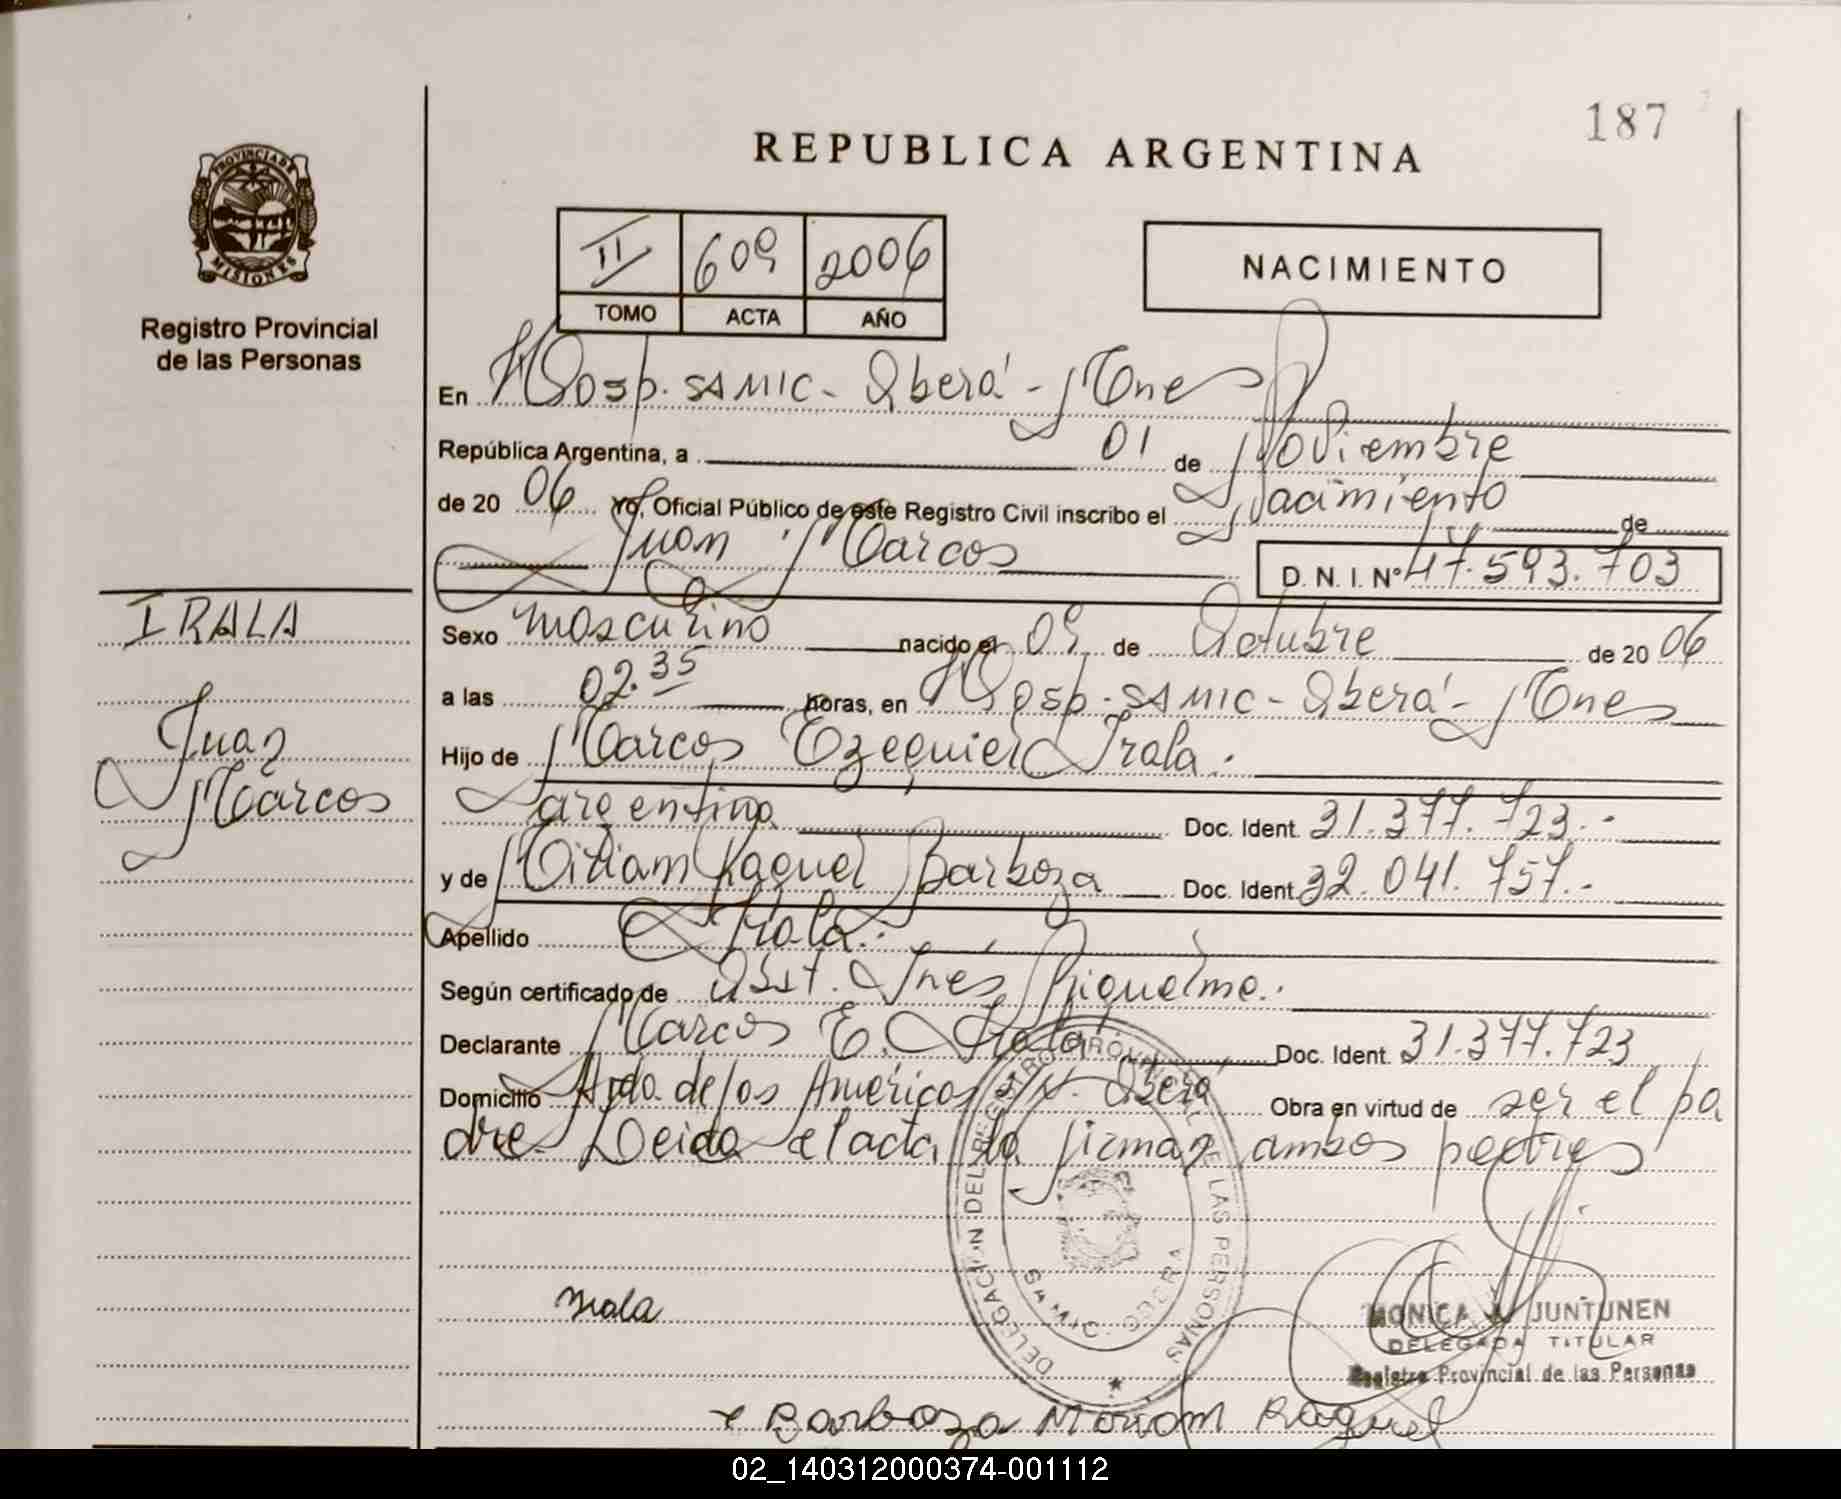 187
REPUBLICA ARGENTINA
PROVINCIA DE
MISIONES
Registro Provincial
de las Personas
II 609 2006
TOMO ACTA AÑO
NACIMIENTO
En Hosp. SAMIC - Oberá - Mnes
República Argentina, a 01 de Noviembre
de 20 06 Yo, Oficial Público de este Registro Civil inscribo el Nacimiento de
Juan Marcos D. N. I. Nº 47.593.703
IRALA
Juan
Marcos
Sexo masculino nacido el 09 de Octubre de 20 06
a las 02.35 horas, en Hosp. SAMIC - Oberá - Mnes
Hijo de Marcos Ezequiel Irala.
argentino Doc. Ident. 31.377.723.-
y de Miriam Raquel Barboza Doc. Ident. 32.041.757.-
Apellido Irala.
Según certificado de Obst. Inés Riquelme.
Declarante Marcos E. Irala Doc. Ident. 31.377.723
Domicilio Avda. de las Américas s/n. Oberá Obra en virtud de ser el pa
dre. Leida el acta la firman ambos padres
DELEGACION DEL REGISTRO PROVINCIAL DE LAS PERSONAS
SAMIC. OBERA
Irala
MONICA JUNTUNEN
DELEGADA TITULAR
Registro Provincial de las Personas
Barboza Miriam Raquel
02_140312000374-001112